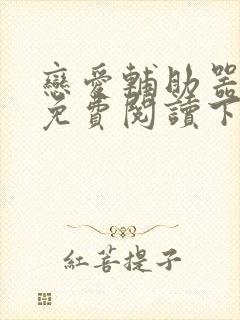 戀愛輔助器
免費閱讀下
紅菩提子